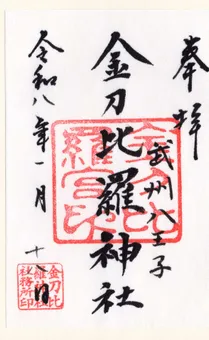 奉拝
武州八王子
金刀比羅神社
令和八年一月
十八日
金刀比羅宮印
金刀比羅神社社務所印